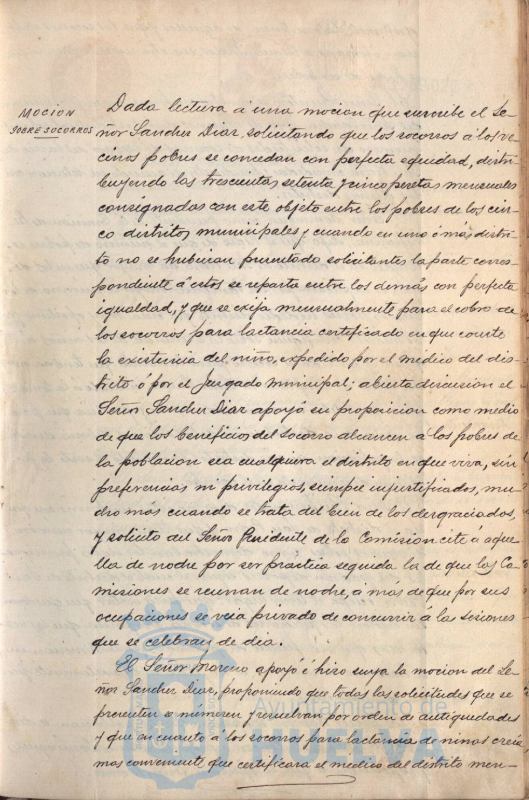 MOCION
SOBRE SOCORROS
Dada lectura á una mocion que suscribe el Se-
ñor Sanchez Diaz, solicitando que los socorros á los ve-
cinos pobres se concedan con perfecta equidad, distri-
buyendo las trescientas setenta y cinco pesetas mensuales
consignadas con este objeto entre los pobres de los cin-
co distritos municipales y cuando en uno ó mas distri-
to no se hubieran presentado solicitantes la parte corres-
pondiente á estos se reparta entre los demás con perfecta
igualdad, y que se exija mensualmente para el cobro de
los socorros para lactancia certificado en que conste
la existencia del niño, expedido por el medico del dis-
trito ó por el Juzgado municipal; abierta discusion el
Señor Sanchez Diaz apoyó su proposicion como medio
de que los beneficios del socorro alcancen á los pobres de
la poblacion sea cualquiera el distrito en que viva, sin
preferencias ni privilegios, siempre injustificados, mu-
cho mas cuando se trata del bien de los desgraciados,
y solicito del Señor Presidente de la Comision cite á aque-
lla de noche por ser práctica seguida la de que las Co-
misiones se reunan de noche, á mas de que por sus
ocupaciones se veia privado de concurrir á las sesiones
que se celebran de dia.
El Señor Moreno apoyó é hizo suya la mocion del Se-
ñor Sanchez Diaz, proponiendo que todas las solicitudes que se
presenten se numeren y resuelvan por orden de antigüedades
y que en cuanto á los socorros para lactancia de niños creia
mas conveniente que certificara el medico del distrito men-
Ayuntamiento de
HUELVA